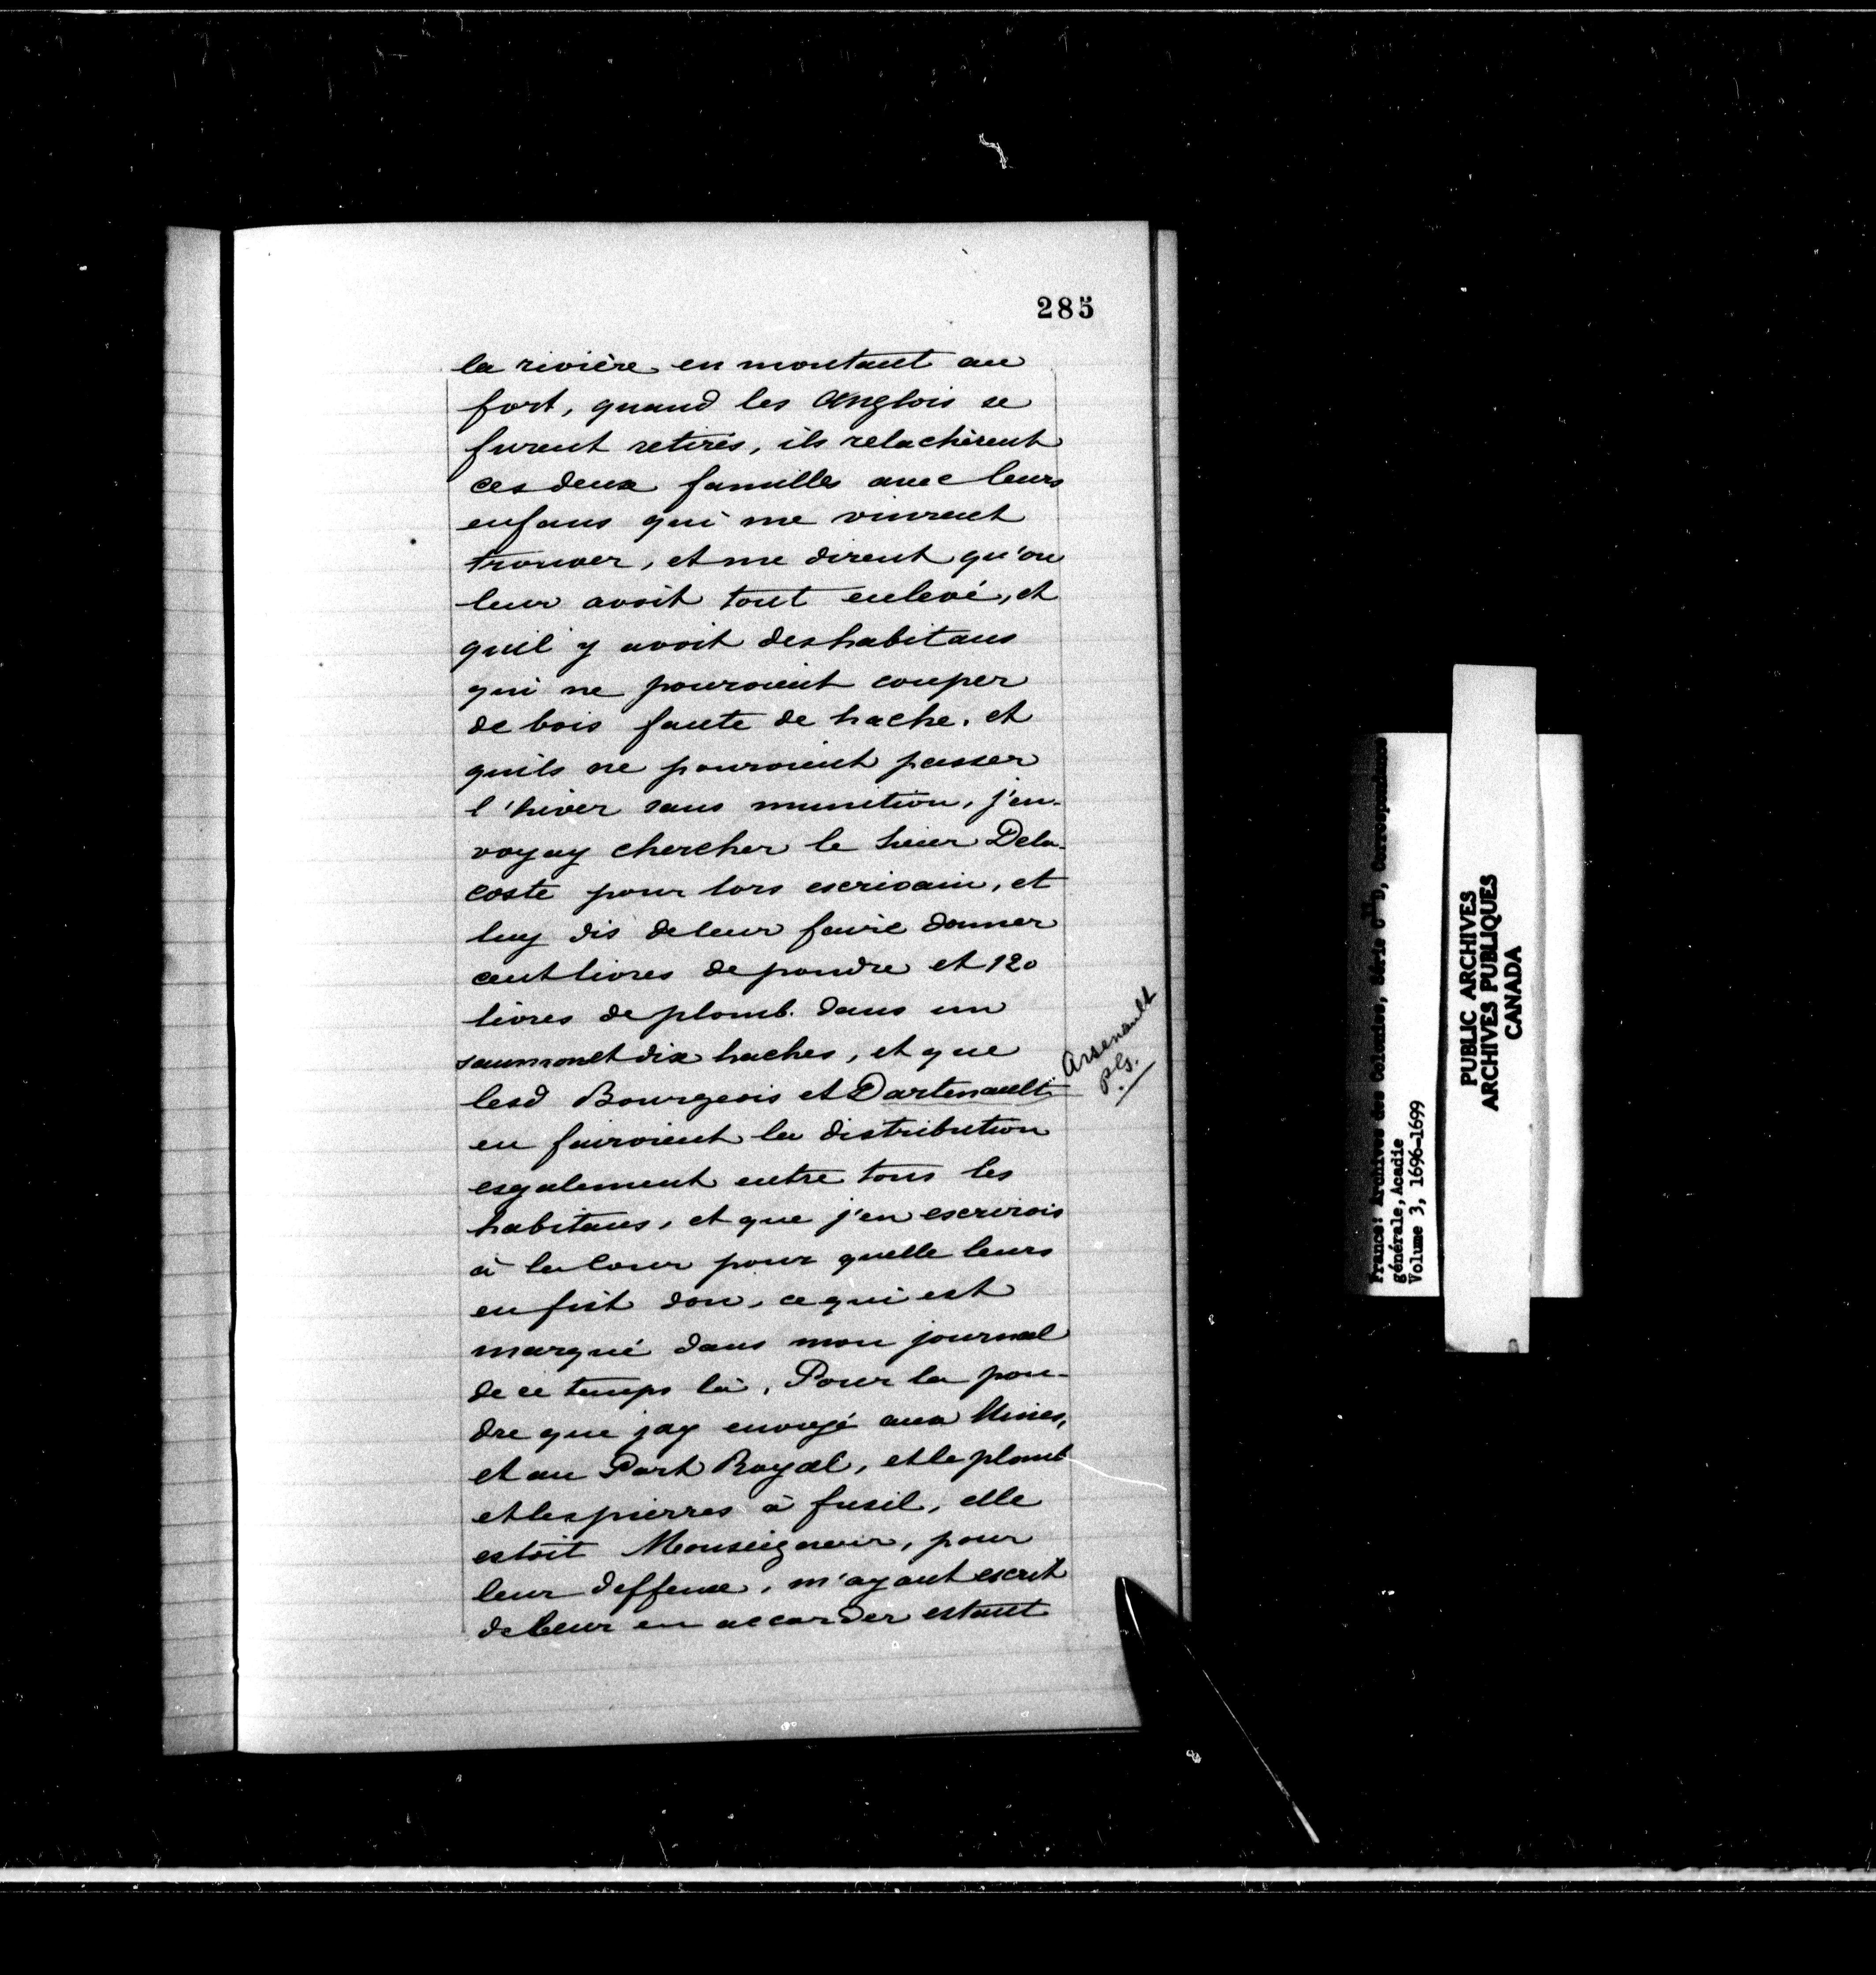 285
la rivière en montant au
fort, quand les Anglois se
furent retirés, ils relachèrent
ces deux familles avec leurs
enfans qui me vinrent
trouver, et me dirent qu'on
leur avoit tout enlevé, et
quil y avoit des habitans
qui ne pouroient couper
de bois faute de hache, et
quils ne pouroient passer
l'hiver sans munition, j'en-
voyay chercher le sieur Dela-
coste pour lors escrivain, et
luy dis de leur faire donner
cent livres de poudre et 120
livres de plomb dans un
saumon et dix haches, et que
lesd Bourgeois et Dartenault
Arsenault
plg.
en fairoient la distribution
esgalement entre tous les
habitans, et que j'en escrirois
à la Cour pour quelle leurs
en fist don, ce qui est
marqué dans mon journal
de ce temps là, Pour la pou-
dre que jay envoyé aux Mines,
et au Port Royal, et le plomb
et les pierres à fusil, elle
estoit Monseigneur, pour
leur deffense, m'ayant escrit
de leur en accorder estant
France: Archives des Colonies, Série C11 D, Correspondance
générale, Acadie
Volume 3, 1696-1699
PUBLIC ARCHIVES
ARCHIVES PUBLIQUES
CANADA